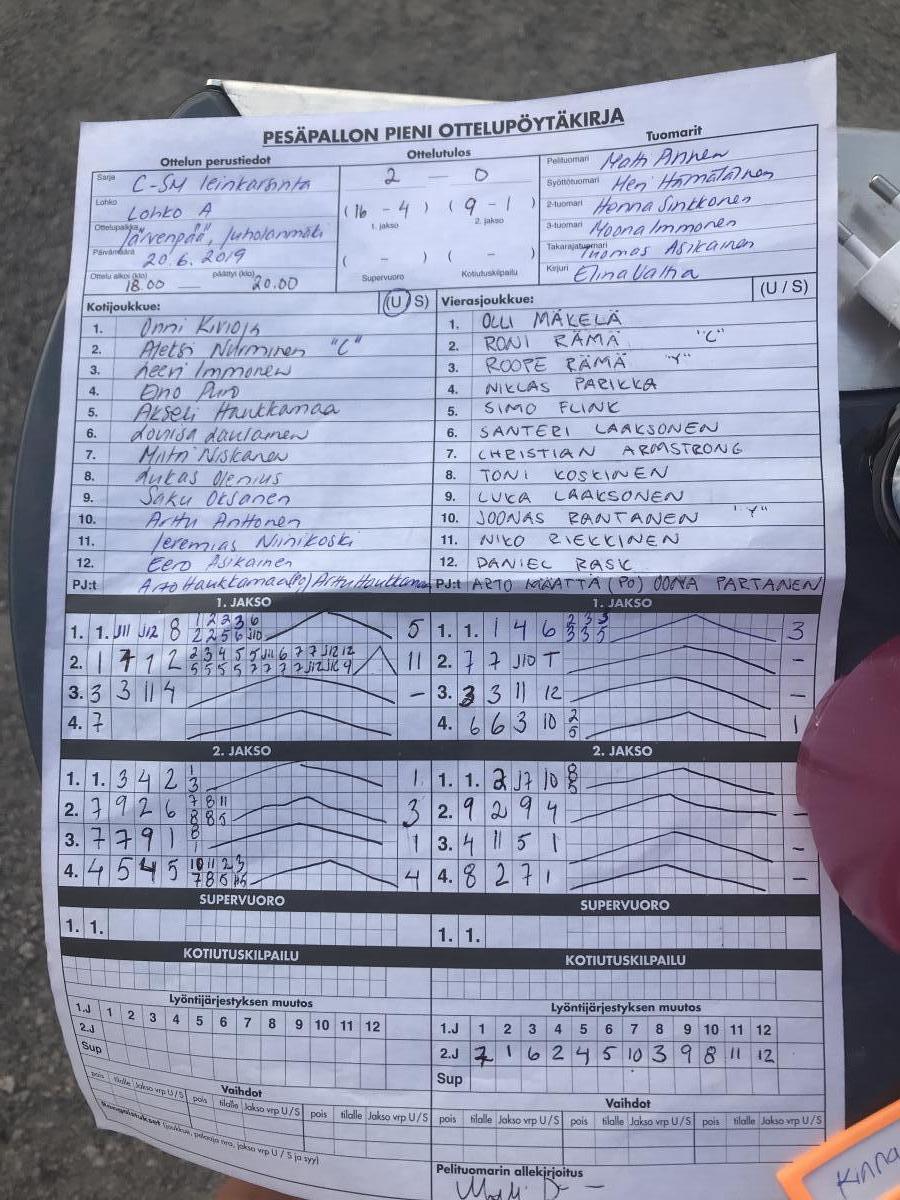 PESÄPALLON PIENI OTTELUPÖYTÄKIRJA
Ottelun perustiedot
Ottelutulos
Tuomarit
Sarja C-SM leirikarsinta
Lohko Lohko A
Ottelupaikka Järvenpää, Juholanmäki
Päivämäärä 20.6.2019
Ottelu alkoi (klo) 18.00 — päättyi (klo) 20.00
2 — 0
(16 - 4) (9 - 1)
1. jakso 2. jakso
( - ) ( - )
Supervuoro Kotiutuskilpailu
Pelituomari
Syöttötuomari Hämäläinen
2-tuomari Henna Sinkkonen
3-tuomari Noona Immonen
Takarajatuomari Tuomas Asikainen
Kirjuri Elina
Kotijoukkue: (U / S)
1. Onni Kivioja
2. Aleksi Nurminen "C"
3. Leevi Immonen
4. Eino Puro
5. Akseli Haukkamaa
6. Lauri
7. Niskanen
8. Lukas Olenius
9. Saku Oksanen
10. Arttu Anttonen
11. Jeremias Niinikoski
12. Eero Asikainen
PJ:t Arto Haukkamaa (PO) Arttu Haukkamaa
Vierasjoukkue: (U / S)
1. OLLI MÄKELÄ
2. RONI RÄMÄ "C"
3. ROOPE RÄMÄ "Y"
4. NIKLAS PARIKKA
5. SIMO FLINK
6. SANTERI LAAKSONEN
7. CHRISTIAN ARMSTRONG
8. TONI KOSKINEN
9. LUKA LAAKSONEN
10. JOONAS RANTANEN "Y"
11. NIKO RIEKKINEN
12. DANIEL RASK
PJ:t ARTO MÄÄTTÄ (PO) OONA PARTANEN
1. JAKSO
1. 1. J11 J12 8 1 2 2 3 6 5
2 2 5 6 J10
2. 1 7 1 2 11
3. 3 3 11 4 –
4. 7
1. JAKSO
1. 1. 1 4 6 2 3 3 3
3 3 5
2. 7 7 J10 T –
3. 3 3 11 12 –
4. 6 6 3 10 2 1
5
2. JAKSO
1. 1. 3 4 2 1 1
3
2. 7 9 2 6 7 8 11 3
8 8 5
3. 7 7 9 1 8 1
1
4. 4 5 4 5 10 11 2 3 4
2. JAKSO
1. 1. 2 J7 10 8 –
5
2. 9 2 9 4 –
3. 4 11 5 1 –
4. 8 2 7 1 –
SUPERVUORO
1. 1.
SUPERVUORO
1. 1.
KOTIUTUSKILPAILU
KOTIUTUSKILPAILU
Lyöntijärjestyksen muutos
1.J 1 2 3 4 5 6 7 8 9 10 11 12
2.J
Sup
Lyöntijärjestyksen muutos
1.J 1 2 3 4 5 6 7 8 9 10 11 12
2.J 7 1 6 2 4 5 10 3 9 8 11 12
Sup
Vaihdot
pois tilalle Jakso vrp U / S pois tilalle Jakso vrp U / S pois tilalle Jakso vrp U / S
Vaihdot
pois tilalle Jakso vrp U / S pois tilalle Jakso vrp U / S pois tilalle Jakso vrp U / S
Rangaistukset (joukkue, pelaaja nro, jakso vrp U / S ja syy)
Pelituomarin allekirjoitus